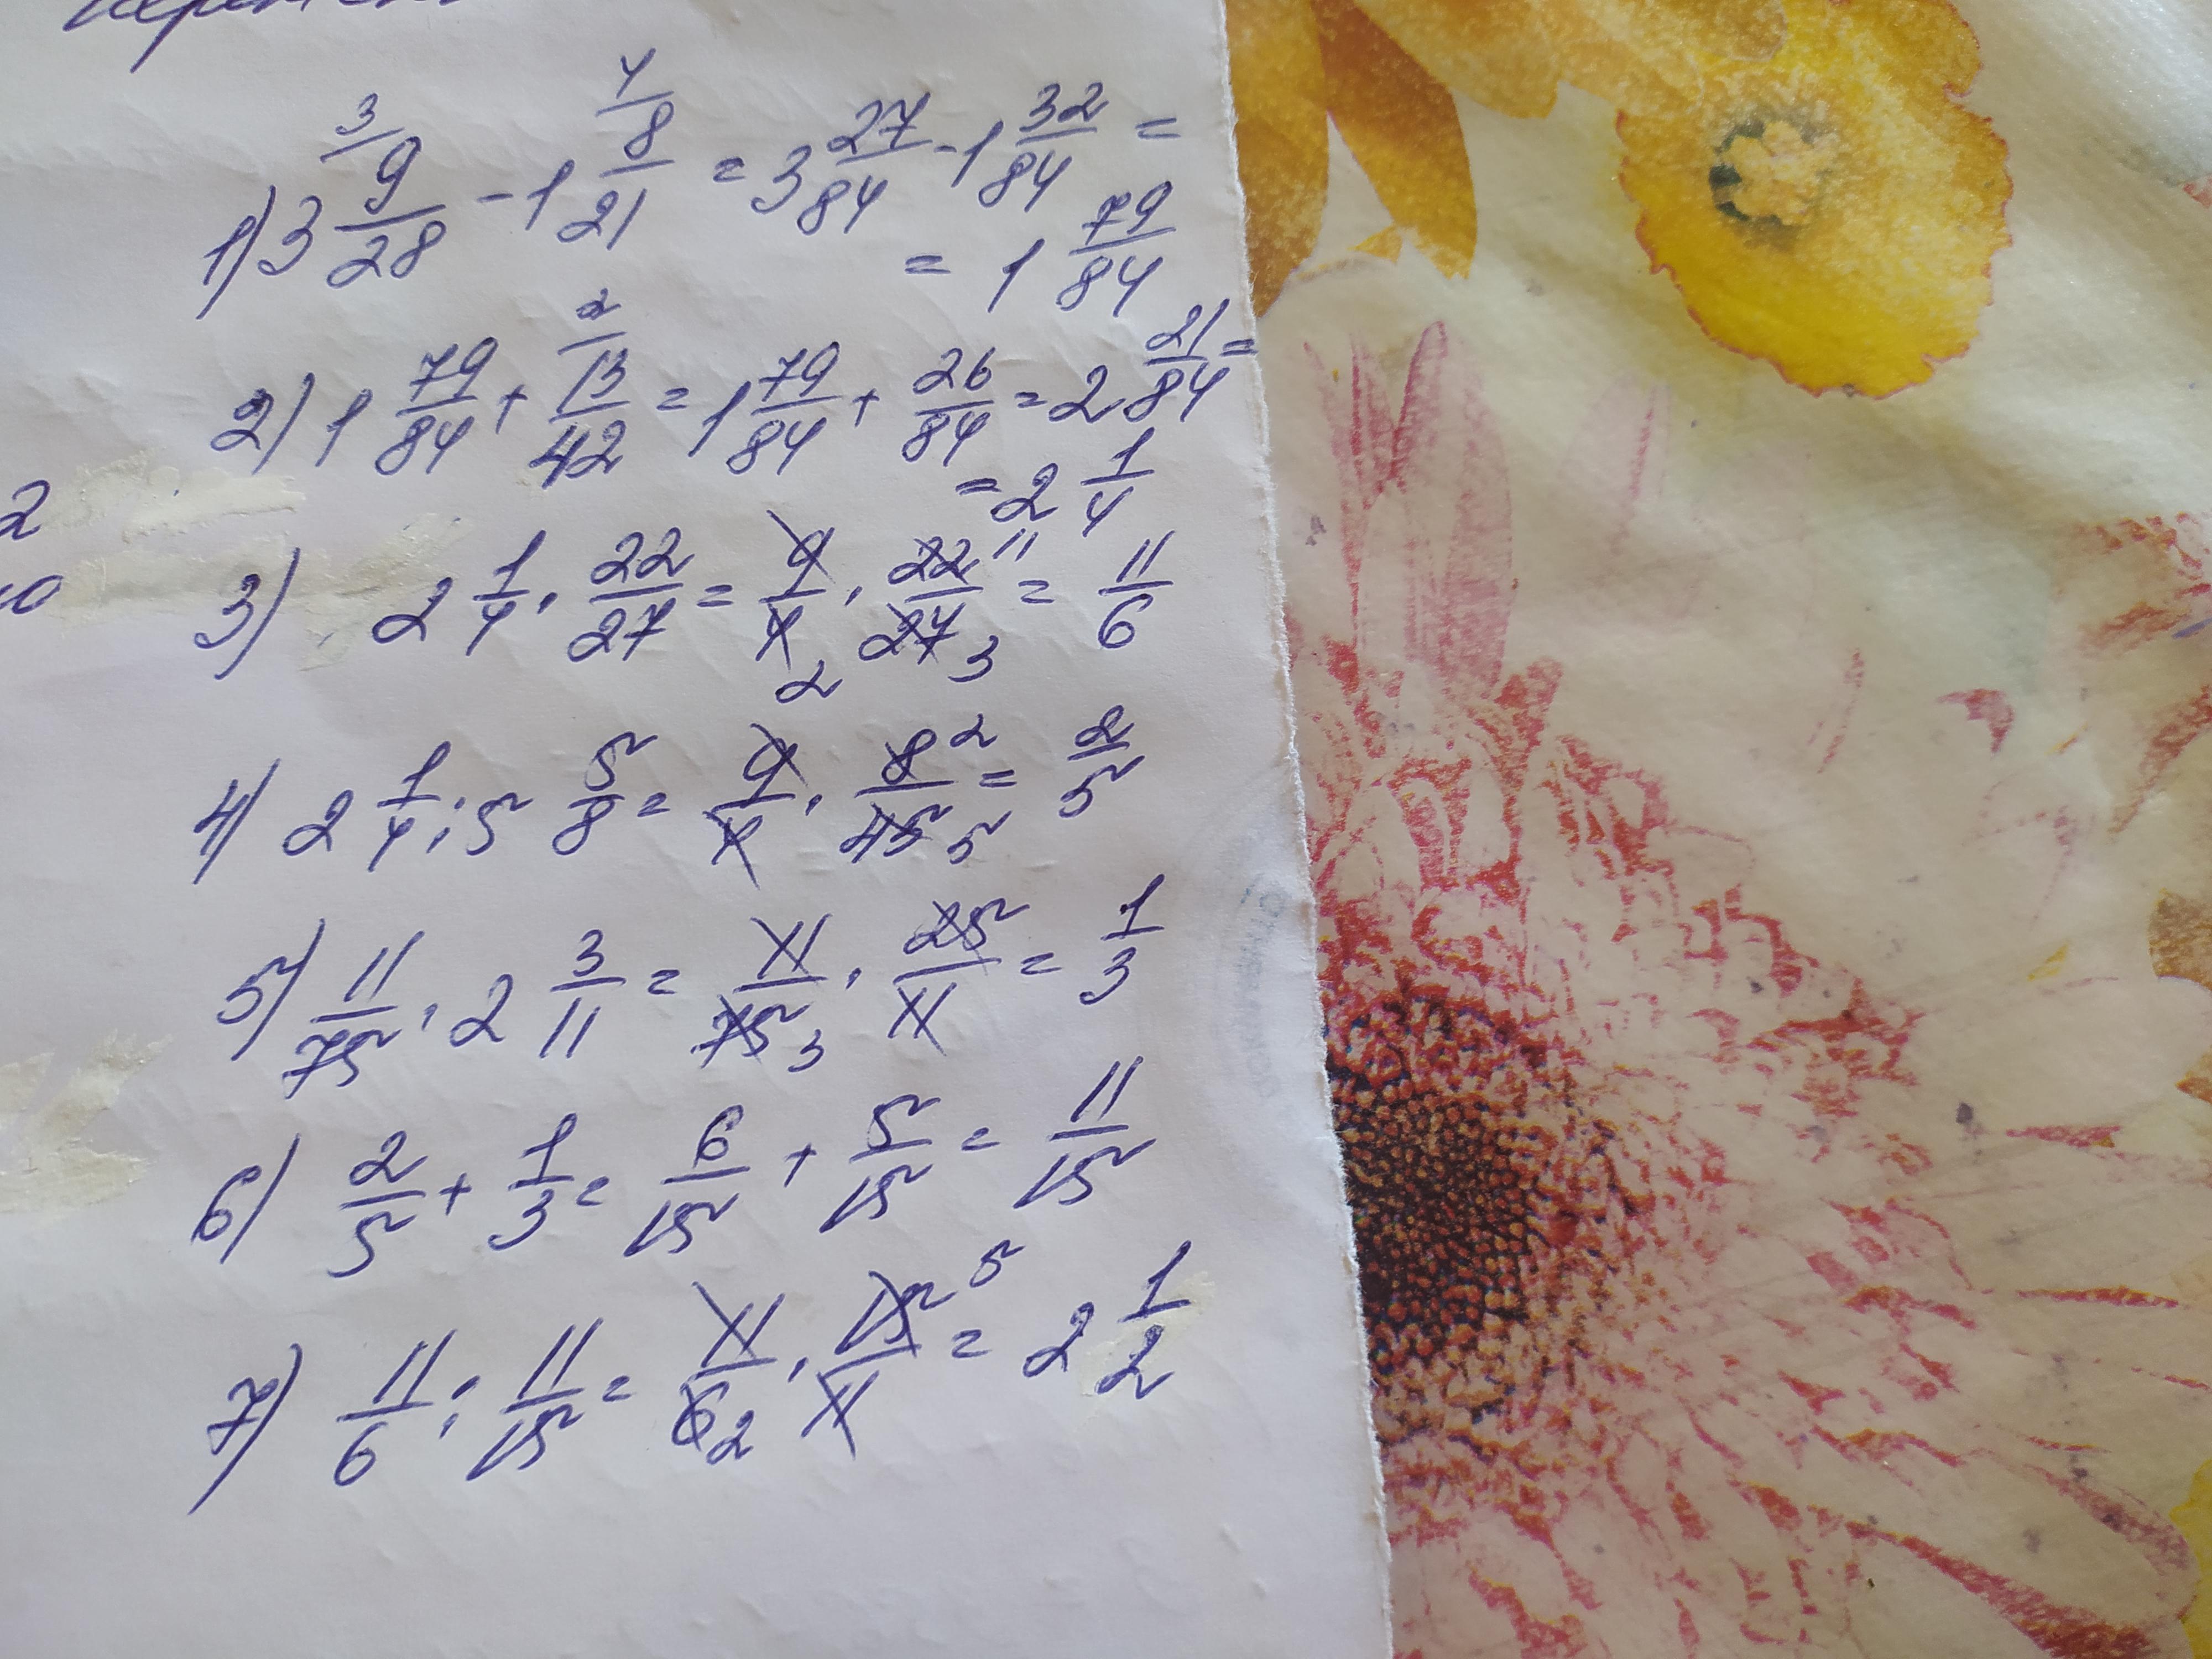 1) 3 9/28 - 1 8/21 = 3 27/84 - 1 32/84 =
= 1 79/84
2) 1 79/84 + 13/42 = 1 79/84 + 26/84 = 2 21/84 =
= 2 1/4
3) 2 1/4 · 22/27 = 9/4 · 22/27 = 11/6
4) 2 1/4 : 5 5/8 = 9/4 · 8/45 = 2/5
5) 11/75 · 2 3/11 = 11/75 · 25/11 = 1/3
6) 2/5 + 1/3 = 6/15 + 5/15 = 11/15
7) 11/6 : 11/15 = 11/6 · 15/11 = 2 1/2